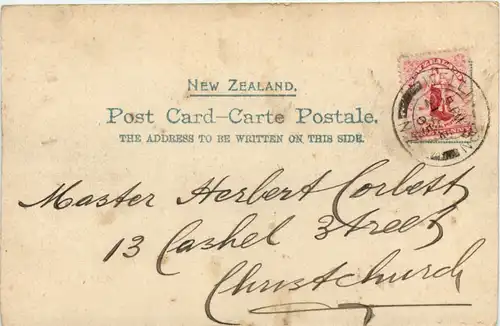 NEW ZEALAND.
Post Card—Carte Postale.
THE ADDRESS TO BE WRITTEN ON THIS SIDE.
Master Herbert Corbett
13 Cashel Street
Christchurch